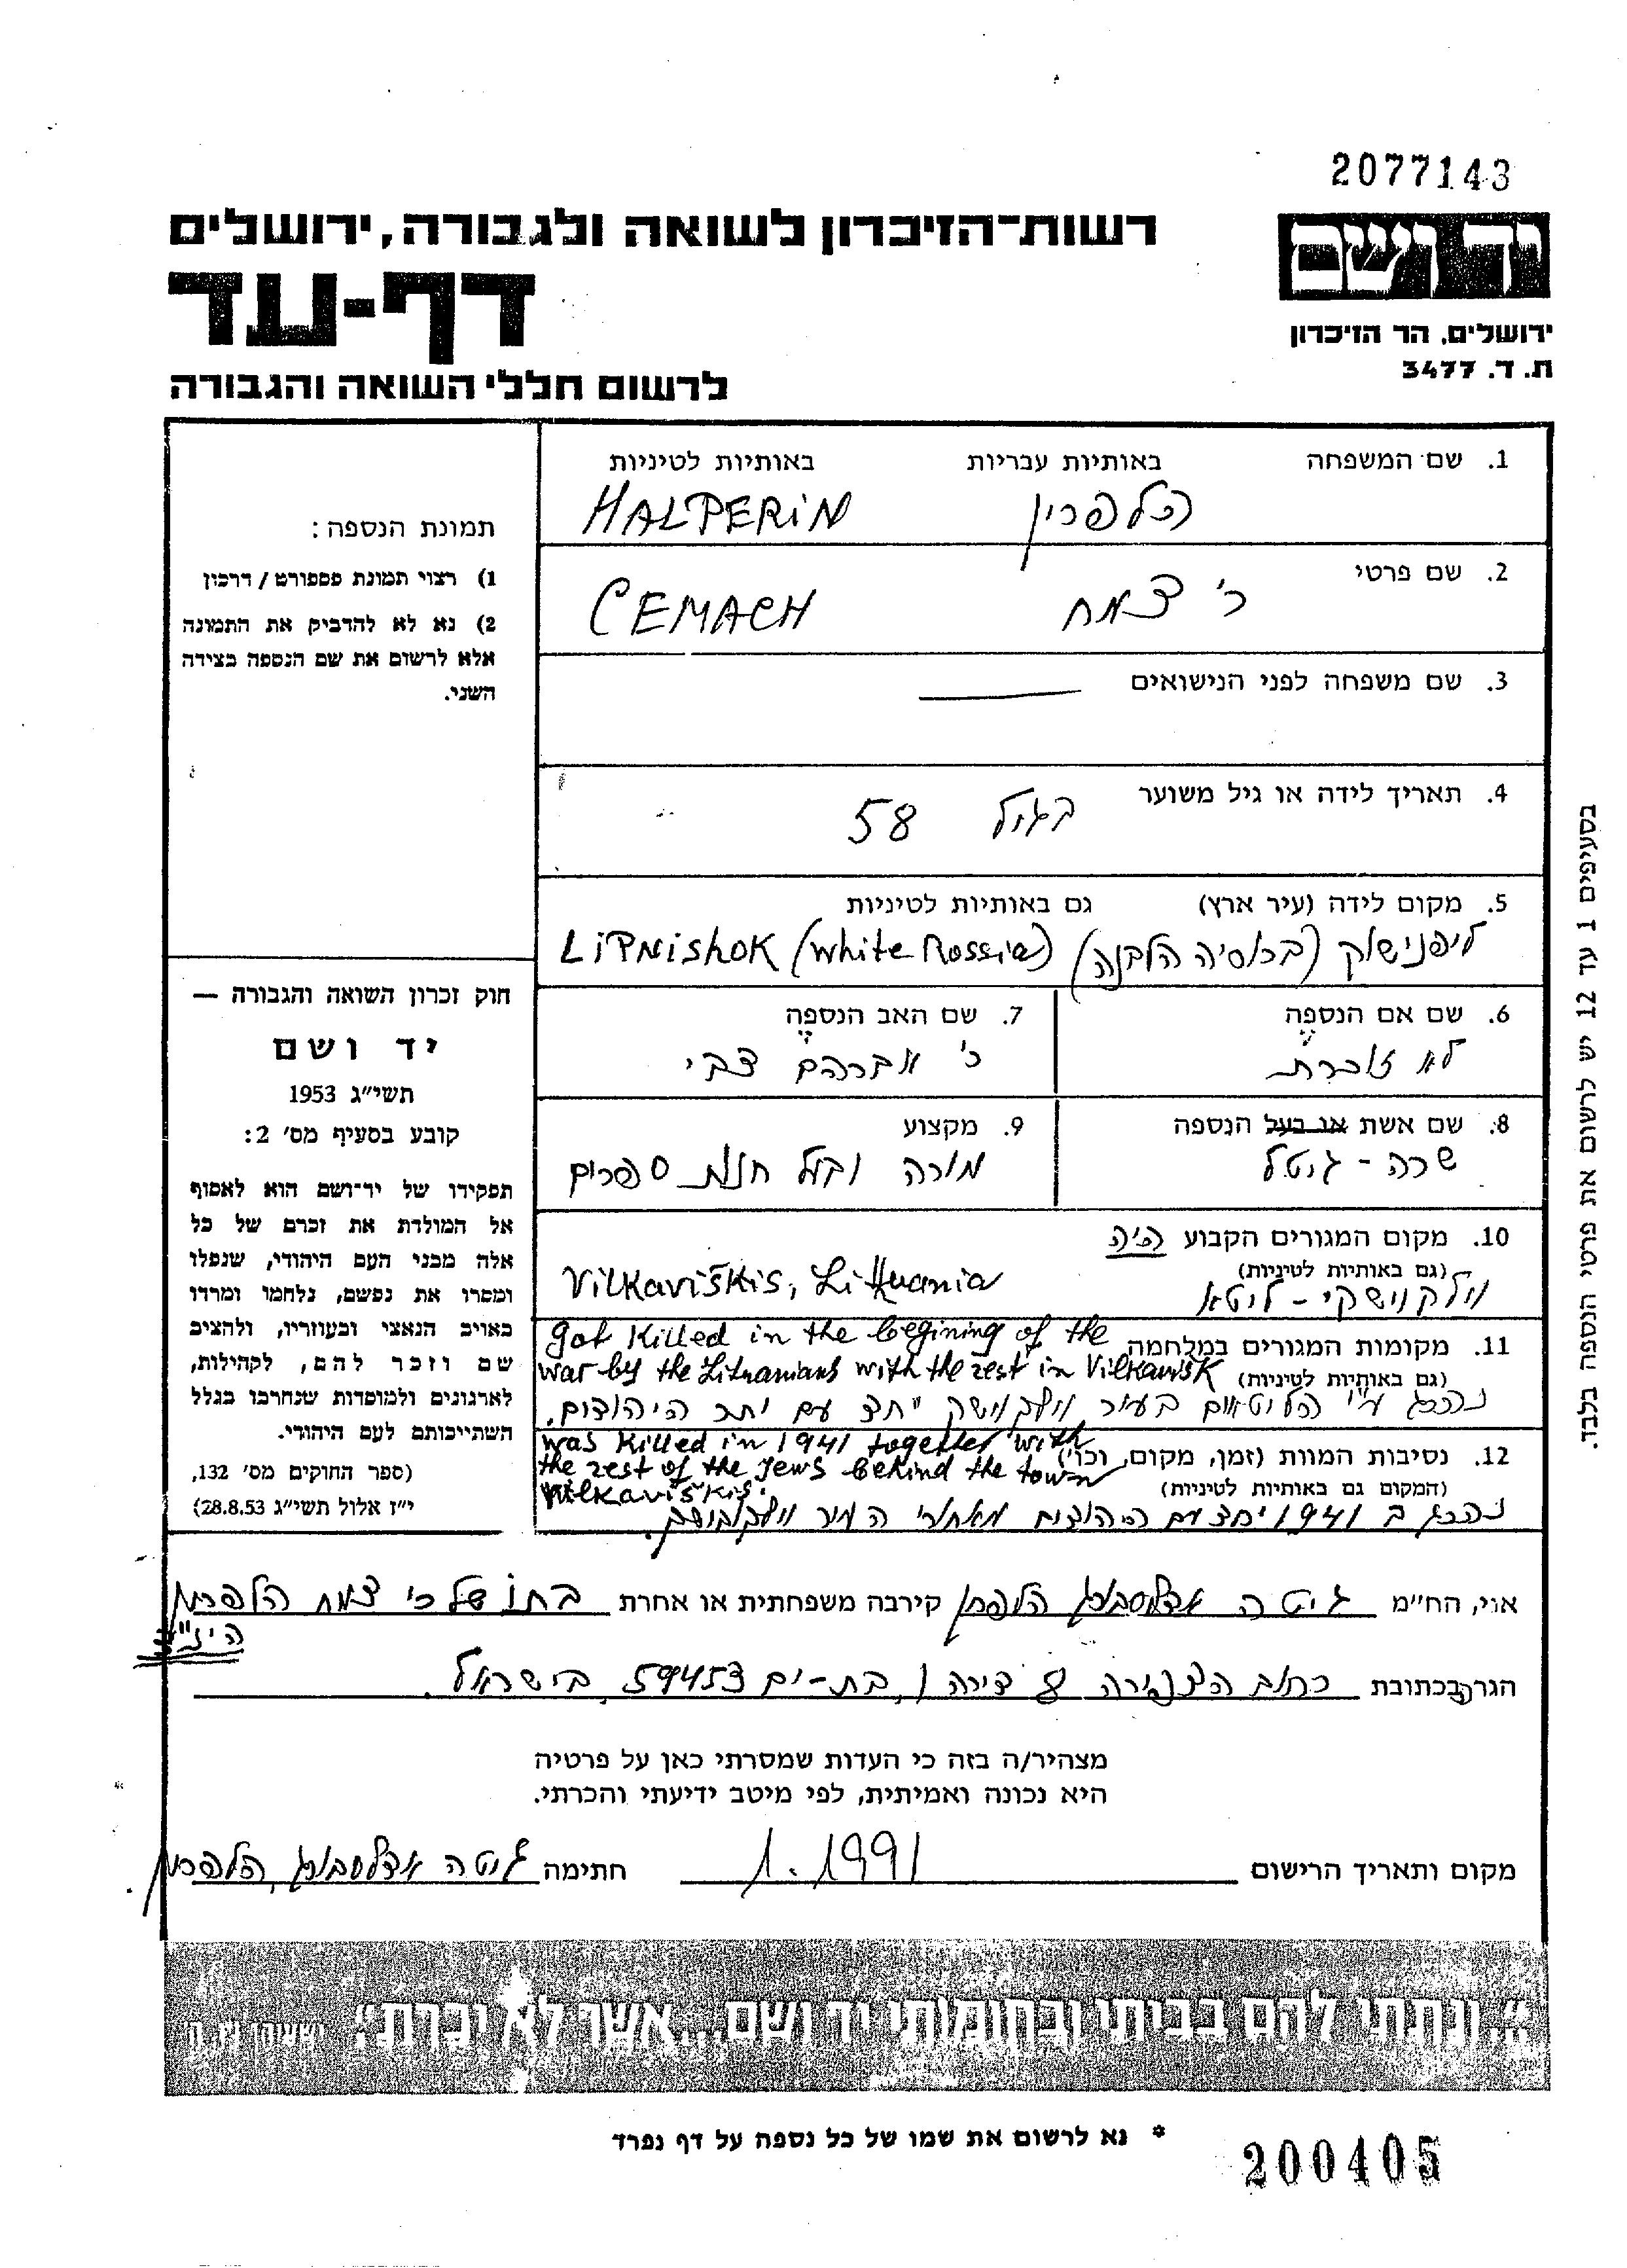 2077143
יד ושם
רשות-הזיכרון לשואה ולגבורה, ירושלים
דף-עד
ירושלים, הר הזיכרון
ת. ד. 3477
לרשום חללי השואה והגבורה
1. שם המשפחה באותיות עבריות באותיות לטיניות
הלפרין HALPERIN
2. שם פרטי
ר' צמח CEMACH
3. שם משפחה לפני הנישואים
4. תאריך לידה או גיל משוער
בגיל 58
5. מקום לידה (עיר ארץ) גם באותיות לטיניות
ליפנישוק (ברוסיה הלבנה) LiPNiSHOK (White Rossia)
6. שם אם הנספה
לא זוכרת
7. שם האב הנספה
ר' אברהם צבי
8. שם אשת או בעל הנספה
שרה - גיטל
9. מקצוע
מורה ובעל חנות ספרים
10. מקום המגורים הקבוע היה
(גם באותיות לטיניות)
וילקוישקי - ליטא Vilkaviškis, Lithuania
11. מקומות המגורים במלחמה
(גם באותיות לטיניות)
got killed in the begining of the
war by the Lituanians with the rest in Vilkavisk
נהרג ע"י הליטאים בעיר וילקוישק יחד עם יתר היהודים.
12. נסיבות המוות (זמן, מקום, וכו')
(המקום גם באותיות לטיניות)
was killed in 1941 together with
the rest of the Jews behind the town
Vilkaviškis.
נהרג ב 1941 יחד עם היהודים מאחרי העיר
תמונת הנספה:
1) רצוי תמונת פספורט / דרכון
2) נא לא להדביק את התמונה
אלא לרשום את שם הנספה בצידה
השני.
חוק זכרון השואה והגבורה —
יד ושם
תשי"ג 1953
קובע בסעיף מס' 2:
תפקידו של יד-ושם הוא לאסוף
אל המולדת את זכרם של כל
אלה מבני העם היהודי, שנפלו
ומסרו את נפשם, נלחמו ומרדו
באויב הנאצי ובעוזריו, ולהציב
שם וזכר להם, לקהילות,
לארגונים ולמוסדות שנחרבו בגלל
השתייכותם לעם היהודי.
(ספר החוקים מס' 132,
י"ז אלול תשי"ג 28.8.53)
בסעיפים 1 עד 12 יש לרשום את פרטי הנספה בלבד.
אני, הח"מ גיטה הלפרין קירבה משפחתית או אחרת בתו של ר' צמח הלפרין
הי"ד
הגר בכתובת רחוב הצפירה 8 דירה 1, בת-ים 59453 בישראל.
מצהיר/ה בזה כי העדות שמסרתי כאן על פרטיה
היא נכונה ואמיתית, לפי מיטב ידיעתי והכרתי.
מקום ותאריך הרישום 1.1991 חתימה גיטה הלפרין
"...ונתתי להם בביתי ובחומותי יד ושם...אשר לא יכרת". ישעיהו נו, ה'
* נא לרשום את שמו של כל נספה על דף נפרד
200405